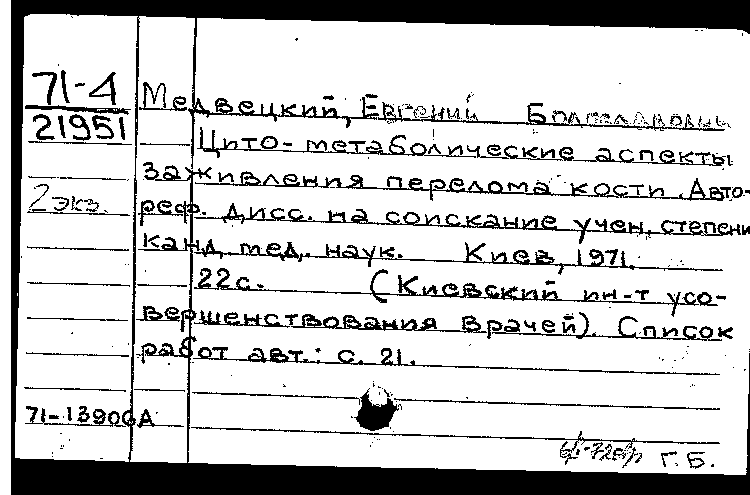 71-4
21951
2 экз.
Медвецкий, Евгений
Цито-метаболические аспекты
заживления перелома кости. Авто-
реф. дисс. на соискание учен. степени
канд. мед. наук. Киев, 1971.
22с. (Киевский ин-т усо-
вершенствования врачей). Список
работ авт.: с. 21.
71-13906А
Г.Б.